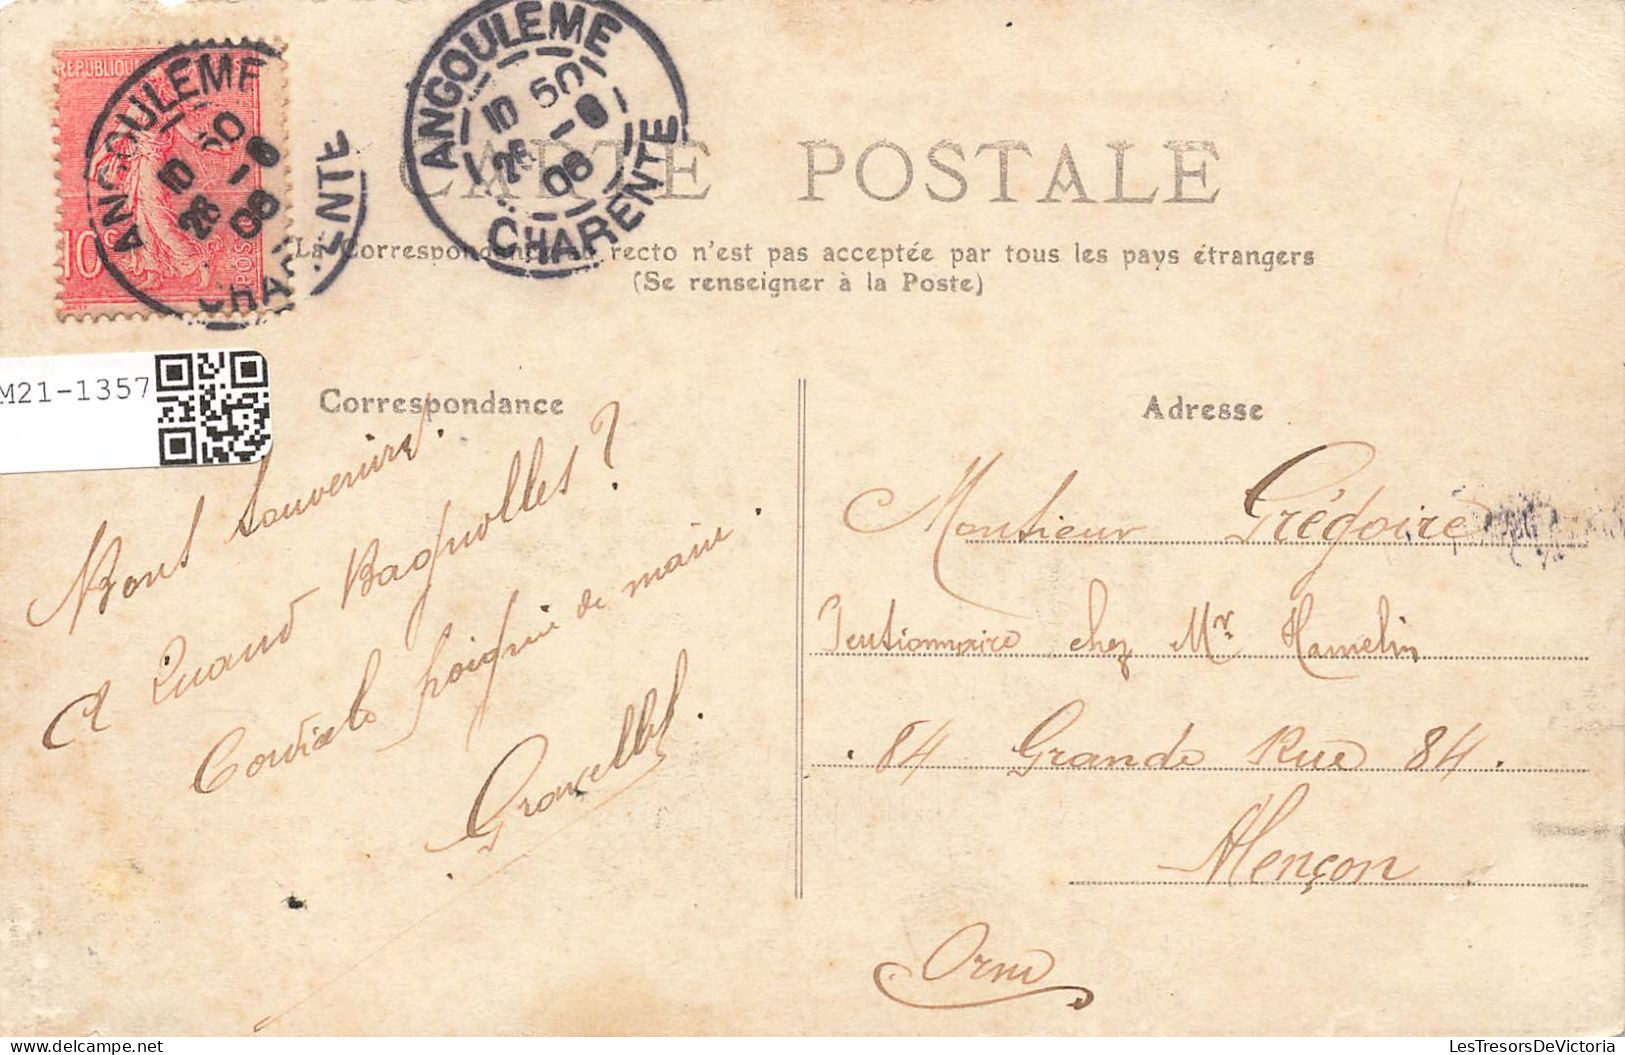 REPUBLIQUE
10c
POS
ANGOULEME
10 50
26 -6
06
CHARENTE
ANGOULEME
10 50
26 -6
06
CHARENTE
CARTE POSTALE
La Correspondance au recto n'est pas acceptée par tous les pays étrangers
(Se renseigner à la Poste)
M21-1357
Correspondance
Bons Souvenirs.
A Quand Bagnolles?
Cordiale poignée de main.
Adresse
Monsieur Grégoire
Pentionnaire chez Mr. Hamelin
. 84 Grande Rue 84.
Alençon
Orne
LesTresorsDeVictoria